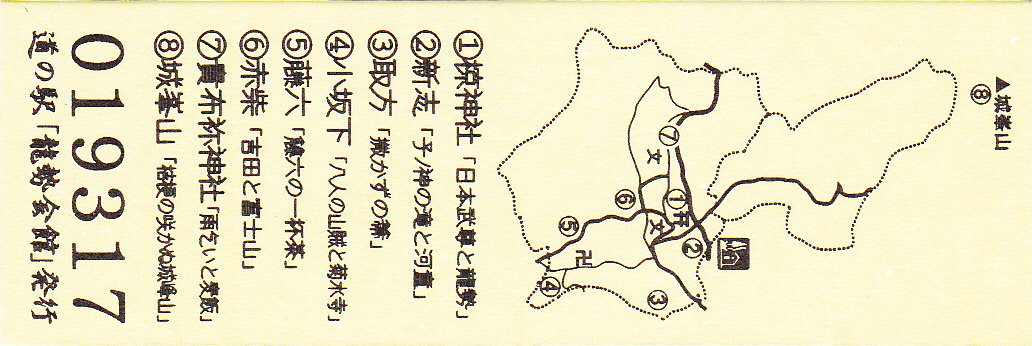 ▲城峯山
⑧
⑦
文
①
⑥
文
②
⑤
卍
③
④
①椋神社「日本武尊と龍勢」
②新志「子ノ神の滝と河童」
③取方「撒かずの稗」
④小坂下「八人の山賊と菊水寺」
⑤藤六「饒六の一杯茶」
⑥赤柴「吉田と富士山」
⑦貴布祢神社「雨乞いと麦飯」
⑧城峯山「桔梗の咲かぬ城峰山」
019317
道の駅「龍勢会館」発行